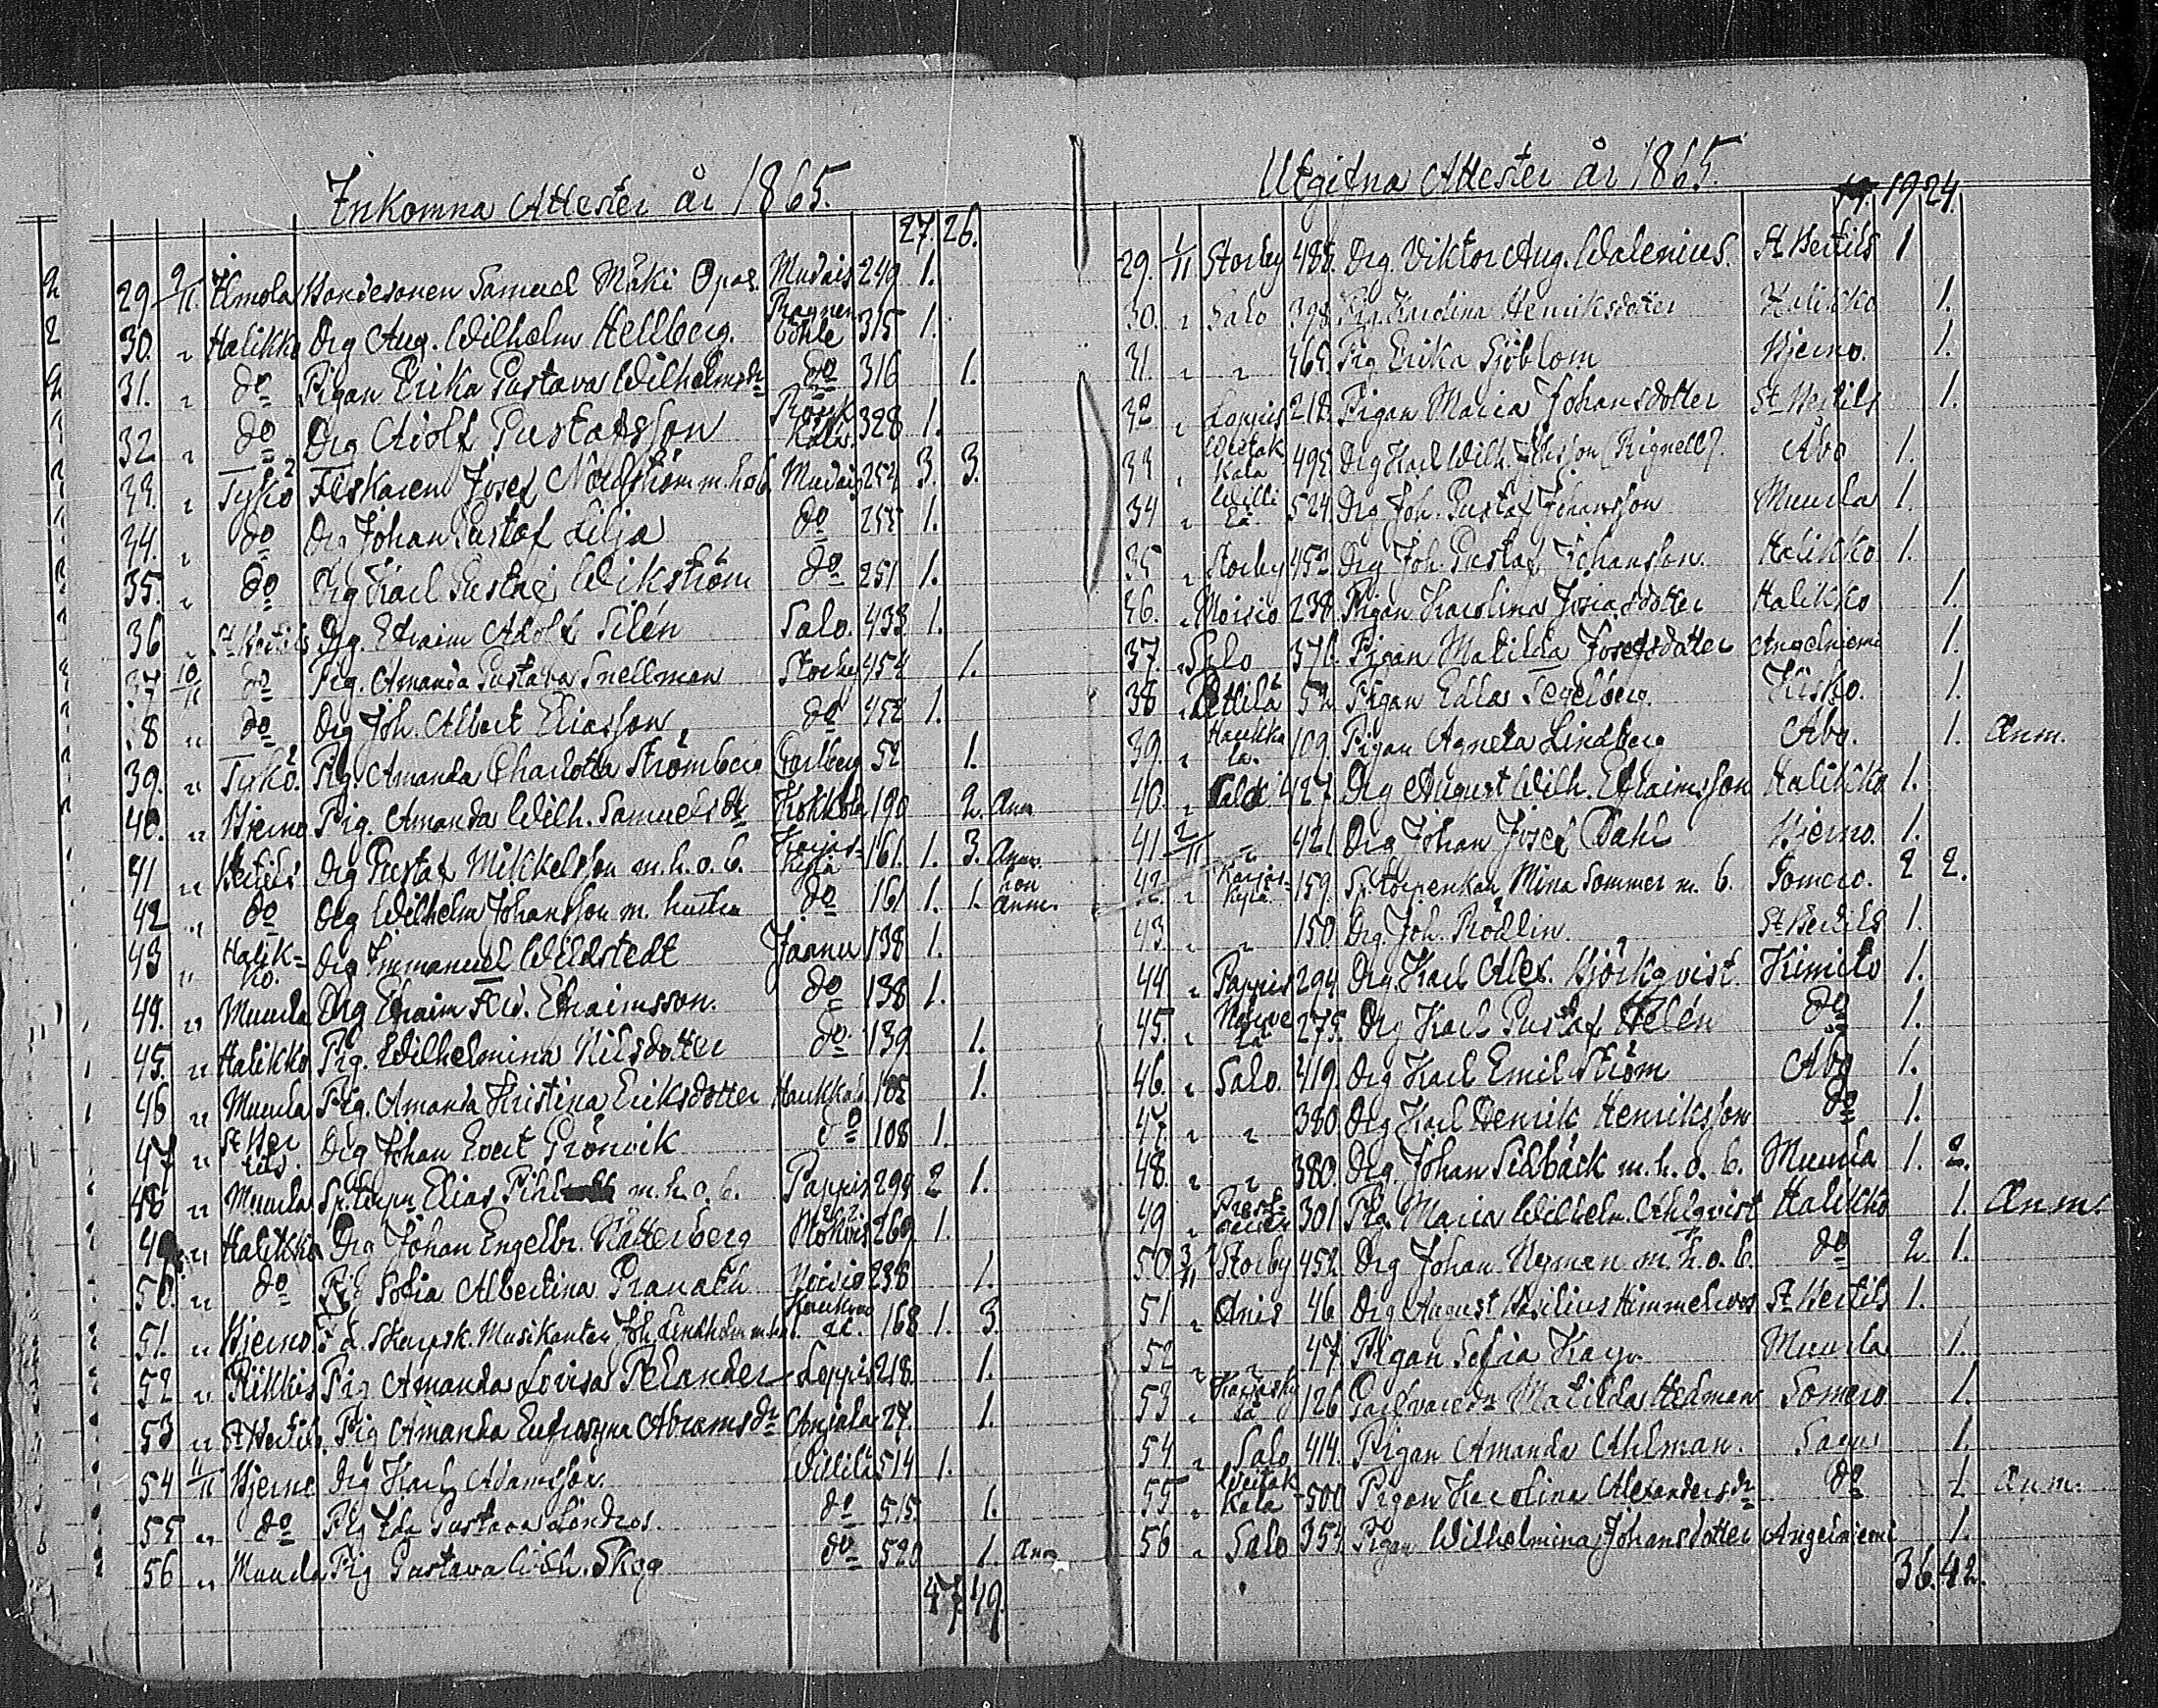 Inkomna Attester år 1865.
27. 26.
29. 9/11 Ilmola Bondesonen Samuel Mäki Opas. Mudais 249 1.
30. " Halikko Drg Aug. Wilhelm Hellberg. böhle 315 1.
31. " do Pigan Erika Gustava Wilhelmsdr do 316 1.
32 " do Drg Adolf Gustafsson 328 1.
33. " Tykö Fiskaren Josef Nordström m. h. o. b. Mudais 254 3. 3.
34. " do Drg Johan Gustaf Lilja do 255 1.
35. " do Drg Karl Gustaf Wikström do 251 1.
36 " St Bertils Drg. Efraim Adolf Silén Salo. 433 1.
37 10/11 do Pig. Amanda Gustava Snellman Storby 454 1.
38 " do Drg Joh. Albert Eliasson do 452 1.
39. " Tykö. Pig. Amanda Charlotta Strömberg Carlberg 52 1.
40. " Bjerno Pig. Amanda Wilh. Samuelsdr Kokkola 190 2. Anm
41 " Bertils Drg Gustaf Mikkelsson m. h. o. b. Karjas-kylä 161. 1. 3. Anm.
42 " do Drg Wilhelm Johansson m. hustru do 161 1. 1. hon Anm.
43 " Halik-ko. Drg Immanuel Wildstedt Joanu 138 1.
44. " Muurla Drg Efraim Efraimsson. do 138 1.
45. " Halikko Pig. Wilhelmina Nilsdotter do 139 1.
46 " Muurla Pig. Amanda Kristina Eriksdotter Haukkala 105 1.
47 " St Bertils. Drg Johan Evert Grönvik do 108 1.
48 " Muurla Sp. torpn Elias m. h. o. b. Pappis 299 2 1.
49. " Halikko Drg Johan Engelbr. Nätterberg 269 1.
50. " do Pig Sofia Albertina Granath Moisio 238 1.
51. " Bjerno F d. Skarpsk. Musikanten Joh. Lindholm m. h. 168 1. 3.
52 " Kikkis Pig Amanda Lovisa Pelander Loppis 218. 1.
53 " St Bertils. Pig Amanda Eufrosyna Abramsdr Anjala 27. 1.
54 11/11 Bjerno Drg Karl Adamsson. Villilä 514 1.
55 " do Pig Ida Gustava Löndros. do 515. 1.
56 " Muurla Pig Gustava Wilh. Skog do 520 1. Anm
47. 49.
Utgifna Attester år 1865.
19 24.
29. 1/11 Storby 485. Drg. Viktor Aug. Walenius. St Bertils 1
30. " Salo 398 Pig. Karolina Henriksdotter Halikko 1.
31. " " 365. Pig Erika Sjöblom Bjerno. 1.
32 " Loppis 218. Pigan Maria Johansdotter St Bertils 1.
33 " kala 495. Drg Karl Wilh. (Rignell). Åbo 1.
34 " Villilä. 524. Drg Joh. Gustaf Johansson Muurla 1.
35 " Storby 452 Drg Joh. Gustaf Johansson. Halikko 1.
36. " Moisio 238. Pigan Karolina Josiasdotter Halikko 1.
37. " Salo 376. Pigan Matilda Josefsdotter Angelniemi 1.
38 " Pettilä 52 Pigan Edla Segelberg. Kisko. 1.
39. " Haukkala. 109. Pigan Agneta Lindberg Åbo. 1. Anm.
40. " Salo 427. Drg August Wilh. Efraimsson Halikko 1.
41 2/11 " 421 Drg Johan Josef Dahl Bjerno. 1.
42. " Karjas-kylä. 159. Sp. torpenkan Mina Sommer m. b. Somero. 2 2.
43. " " 150. Drg. Joh. Rödlin. St Bertils 1.
44 " Pappis 294 Drg. Karl Alex. Björkqvist. Kimito 1.
45. " 275. Drg Karl Gustaf Helén do 1.
46. " Salo. 419. Drg Karl Emil Ström Åbo 1.
47. " " 380. Drg Karl Henrik Henriksson do 1.
48. " " 380. Drg. Johan Selbäck m. h. o. b. Muurla 1. 2.
49 " 301 Pig. Maria Wilhelm. Ahlqvist Halikko 1. Anm.
50 3/11 Storby 452. Drg Johan Nyman m. h. o. b. do 2. 1.
51 " Anis 46. Drg August Basilius Himmelroos St Bertils 1.
52 " " 47. Pigan Sofia Muurla 1.
53 " Karjaskylä 126 Matilda Hedman Somero 1.
54 " Salo 414. Pigan Amanda Ahlman. Sagu 1.
55 " 500 Pigan Karolina Alexandersdr do 1 Anm.
56 " Salo 354. Pigan Wilhelmina Johansdotter Angelniemi 1.
36. 42.